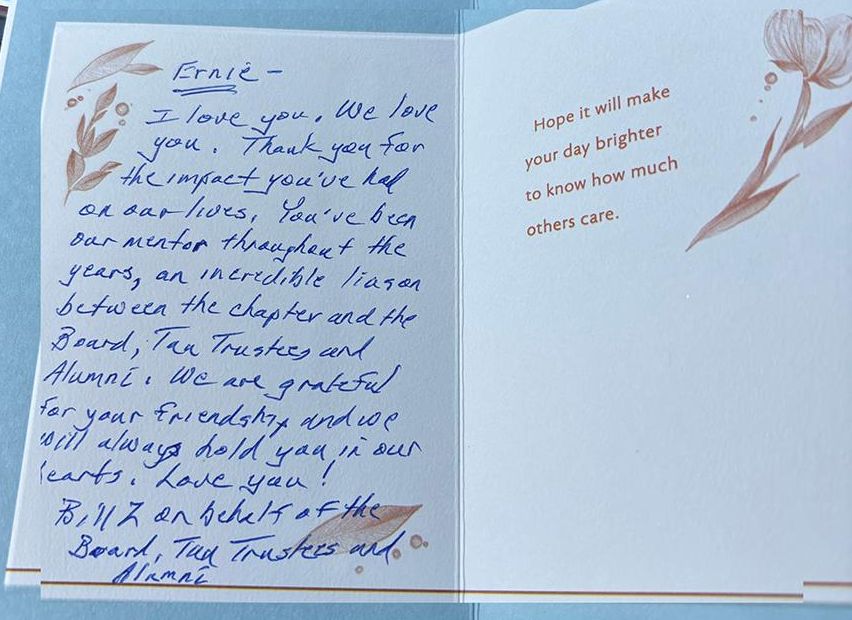 Ernie -
I love you. We love
you. Thank you for
the impact you've had
on our lives. You've been
our mentor throughout the
years, an incredible liason
between the chapter and the
Board, Tau Trustees and
Alumni. We are grateful
for your friendship and we
will always hold you in our
hearts. Love you!
Bill Z on behalf of the
Board, Tau Trustees and
Alumni
Hope it will make
your day brighter
to know how much
others care.